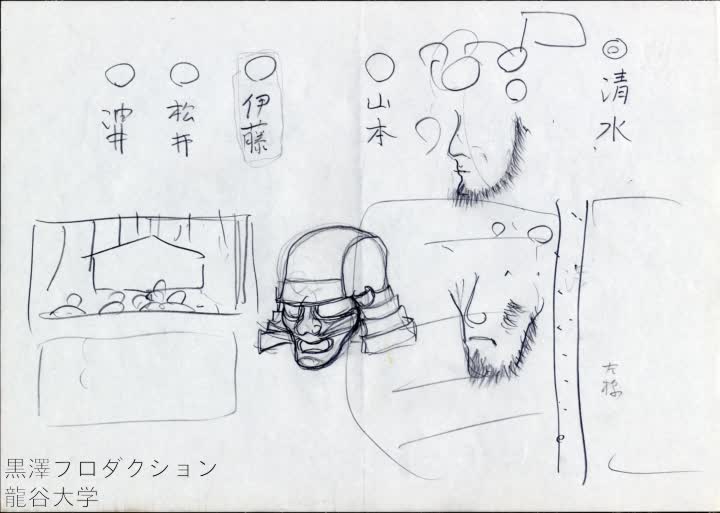 清水
山本
伊藤
松井
油井
左様
黒澤フロダクション
龍谷大学